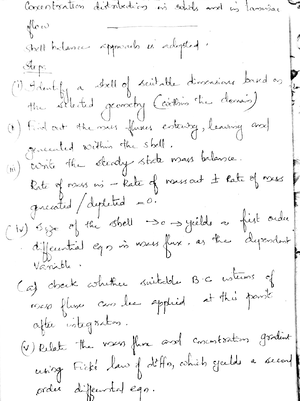 Concentration distributions in solids and in laminar
flow
Shell balance approach is adopted.
Steps
(i) Identify a shell of suitable dimensions based on
the selected geometry (within the domain)
Find out the mass fluxes entering, leaving and
generated within the shell.
(iii) Write the steady state mass balance.
Rate of mass in - Rate of mass out ± Rate of mass
generated / depleted = 0.
(iv) Size of the shell → 0 → yields a first order
differential eqn in mass flux as the dependent
variable.
(a) check whether suitable B.C in terms of
mass flux can be applied at this point
after integration.
(v) Relate the mass flux and concentration gradient
using Fick's law of diffn, which yields a second
order differential eqn.